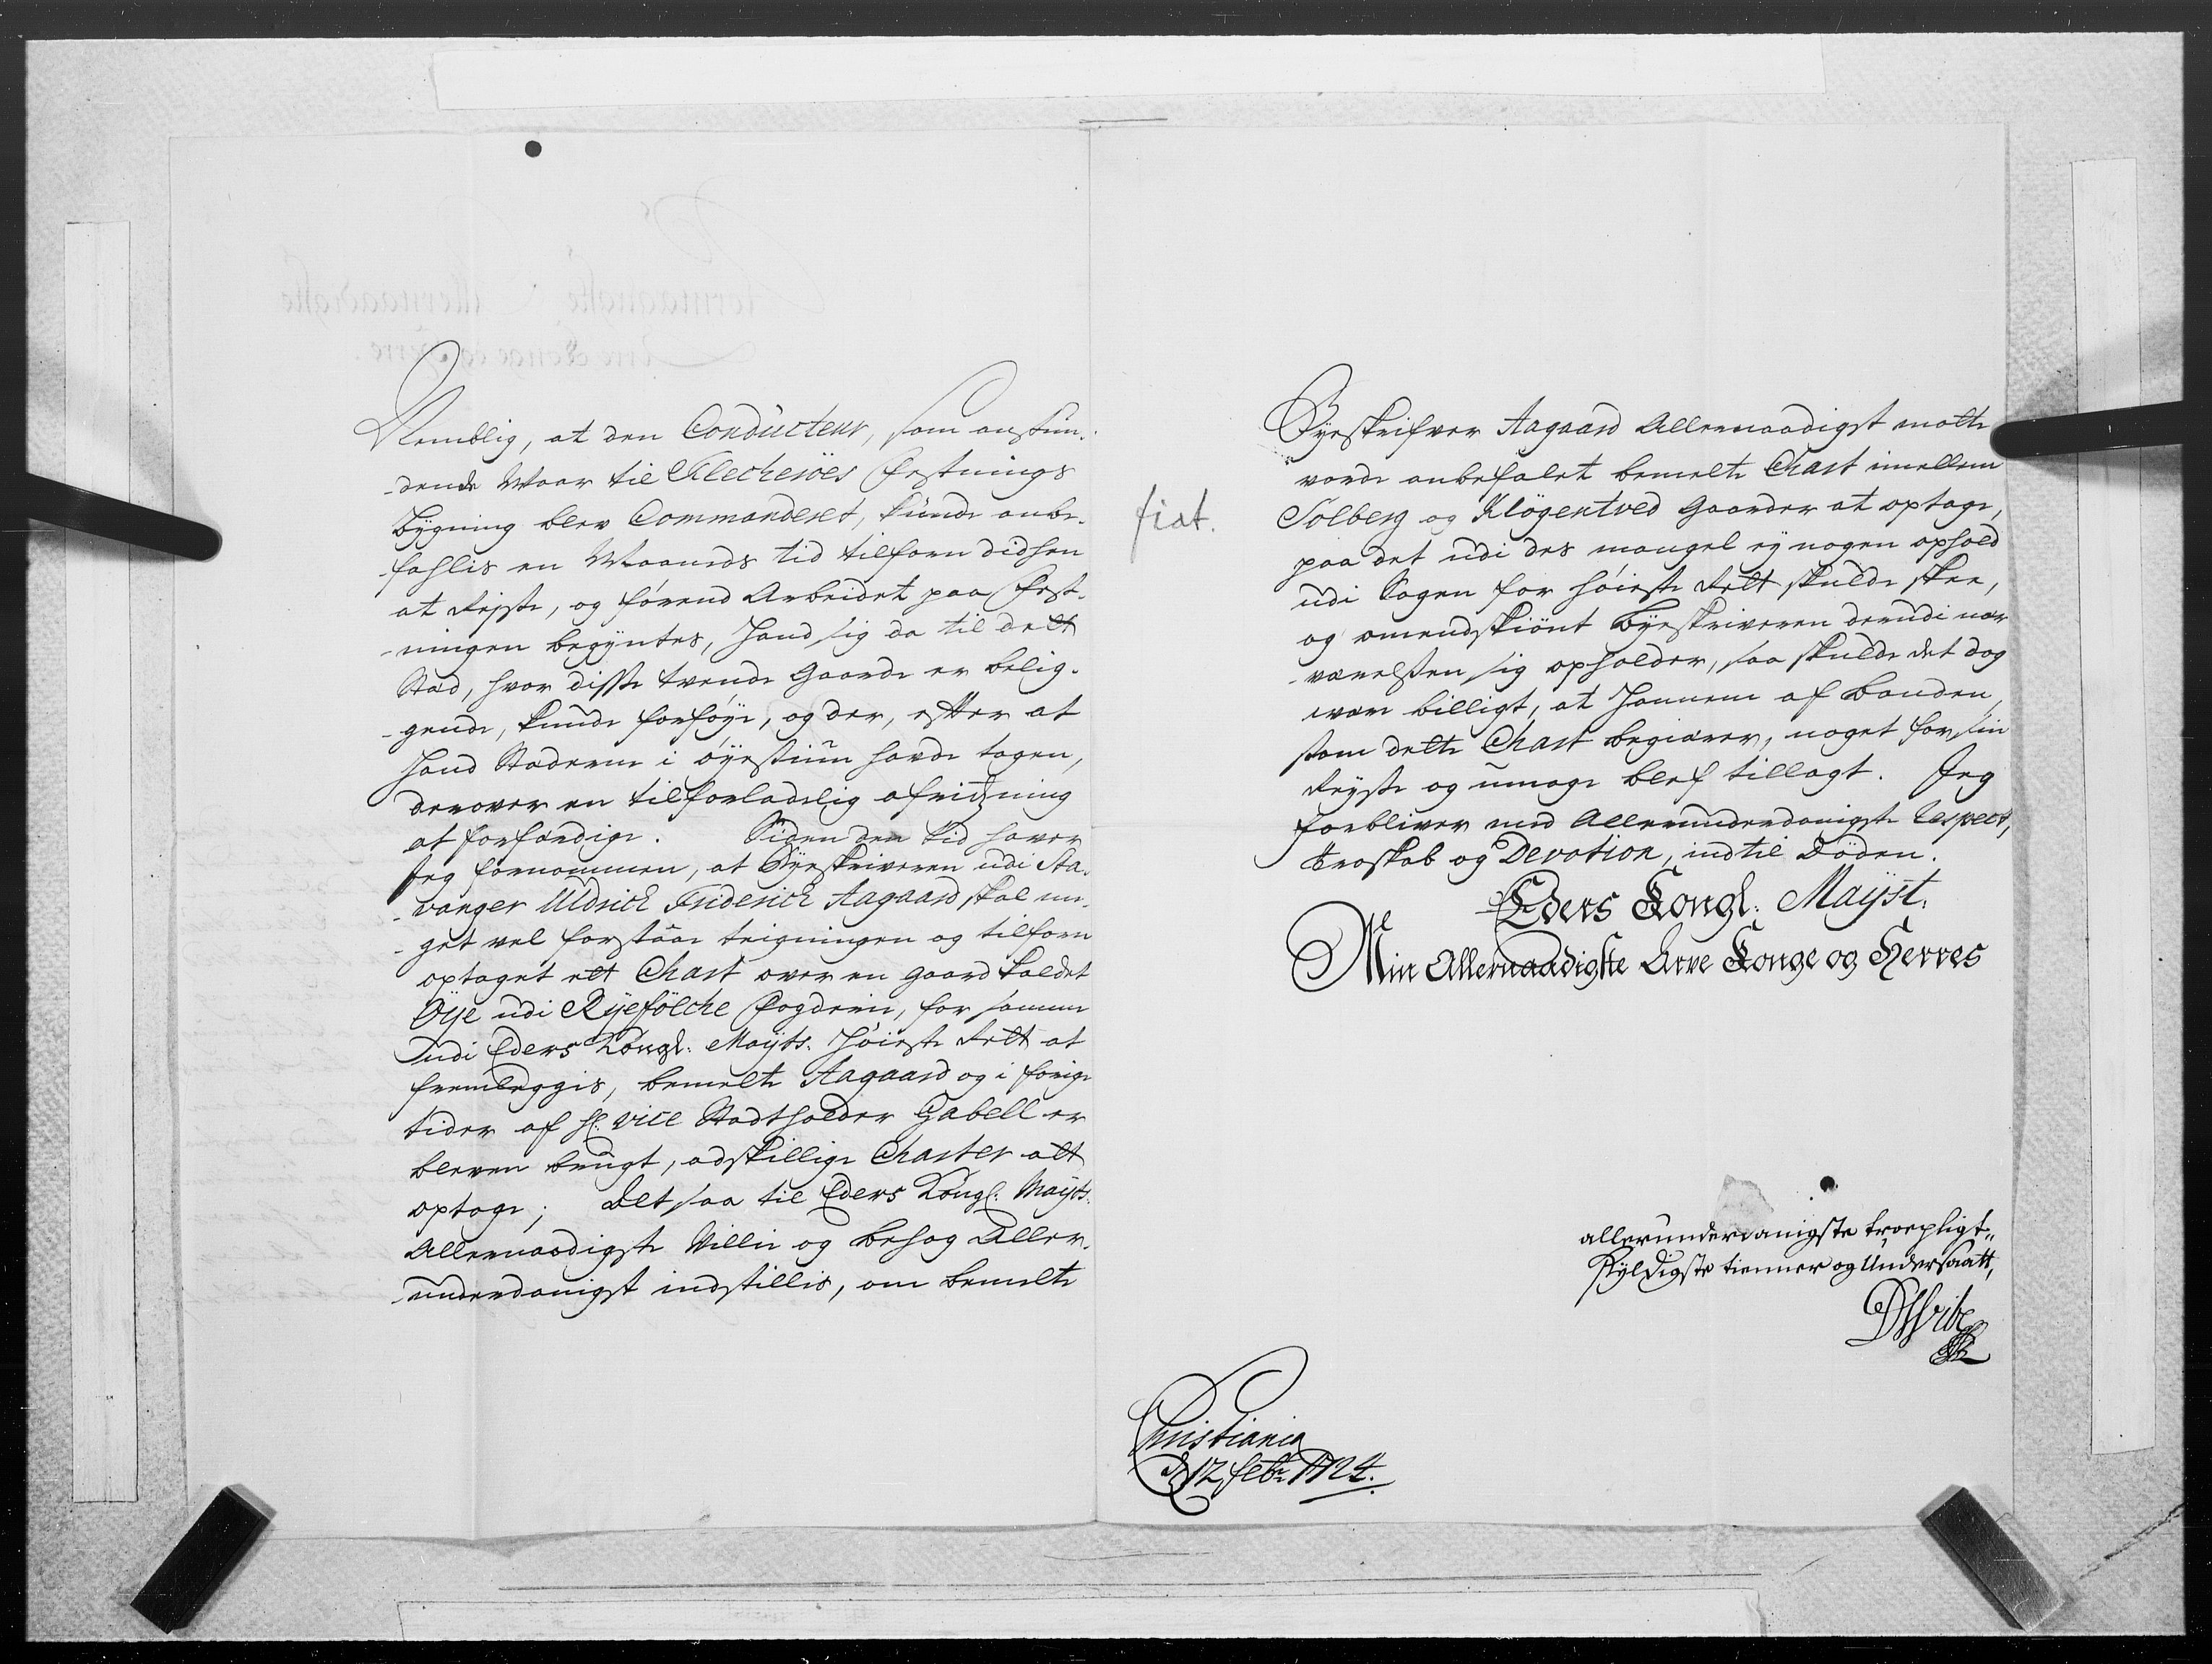 Nemblig, at den Conducteur, som anstun-
dende Waar til Flecheröes Festnings
bygning blev Commanderet, kunde anbe-
fahlis en Maaneds tid tilforn didhen
at Rejse, og förend Arbeidet paa Fæst-
ningen begyntes, Hand sig da til dett
Stæd, hvor disse tvende Gaarde er belig-
gende, kunde forföye, og der, efter at
Hand Stæderne i öyesiun havde tagen,
derover en tilforladelig afridsning
at forfærdige. Siden den tid haver
Jeg fornommen, at Byeskriveren udi Sta-
vanger Uldrich Friderich Aagaard skal me-
get vel forstaae teigningen og tilforn
optaget ett Chart over en gaard kaldet
Öye udi Ryefölche Fogderie, for samme
udi Eders Kongl: Mayts. Höieste Rett at
fremleggis, bemelte Aagaard og i forige
tider af Hr. Vice Stadtholder Gabell er
bleven brugt, adskillige Charter att
optage; Det saa til Eders Kongl: Mayts.
Allernaadigste Villie og behag Aller-
underdanigst indstillis, om bemelte
fiat.
Byeskrifver Aagaard Allernaadigst motte
vorde anbefalet bemelte Chart imellem
Solberg og Klögentved Gaarder at optage,
paa det udi des mangel ey nogen ophold
udi Sagen for höieste Rett skulde skee,
og omendskiönt Byeskriveren derudi nær
værelsen sig opholder, saa skulde det dog
være billigt, at Hannem af bonden,
som dette Chart begiærer, noget for sin
Reyse og umage blef tillagt. Jeg
forbliver med Allerunderdanigste Respect,
troskab og Devotion, indtil Döden.
Eders Kongl: Mayst.
Min Allernaadigste Arve Konge og Herres
allerunderdanigste troepligt-
skyldigste tienner og Undersaatt,
D Vibe
Christiania
d 12 febr: 1724.